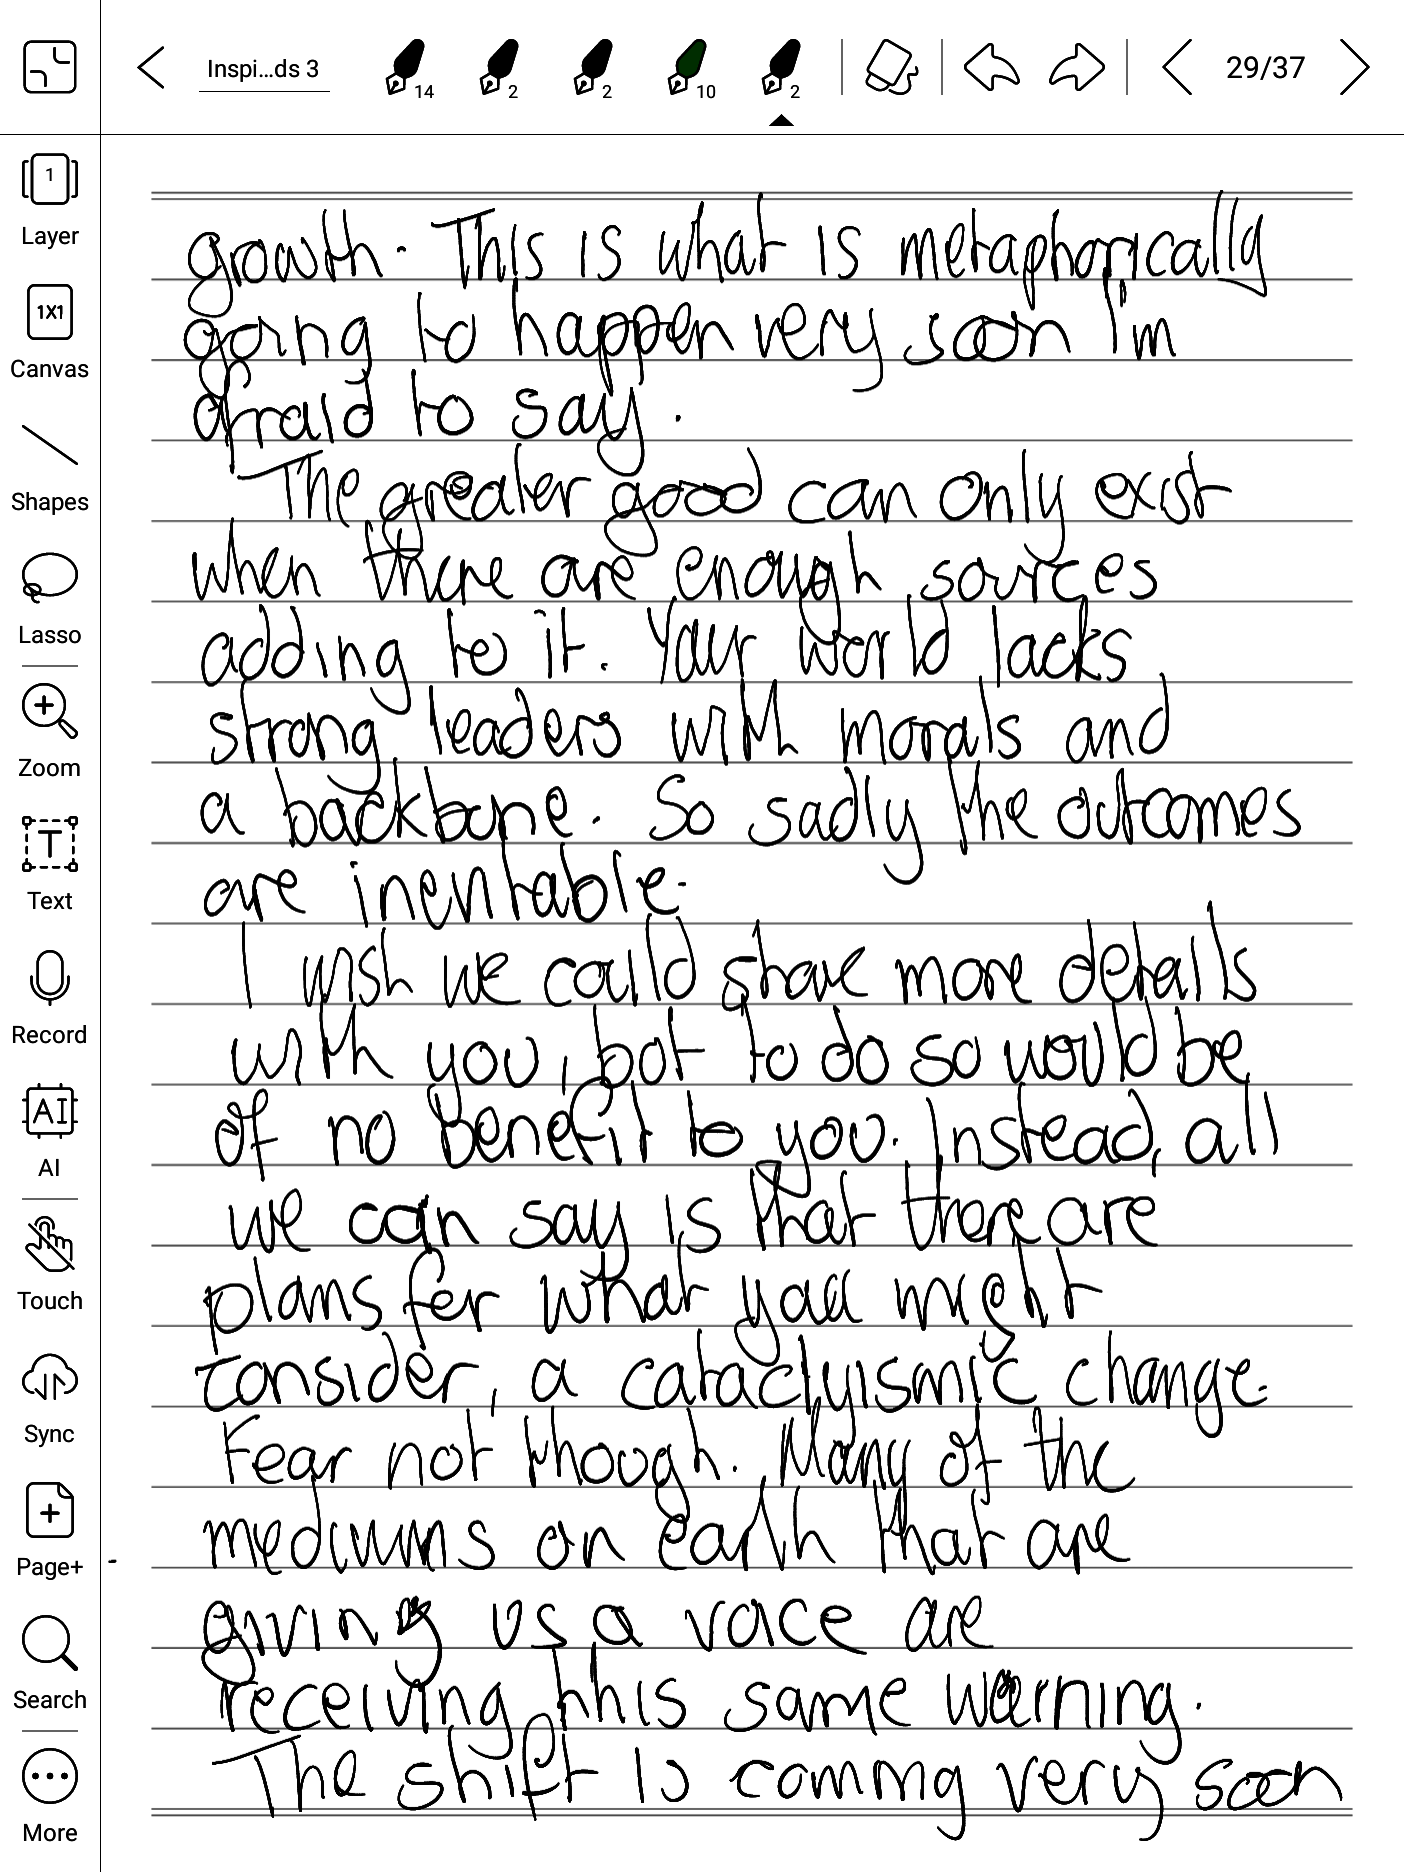 Inspi...ds 3
14
2
2
10
2
29/37
1
Layer
1X1
Canvas
Shapes
Lasso
Zoom
T
Text
Record
AI
AI
Touch
Sync
Page+
Search
More
growth. This is what is metaphorically
going to happen very soon I'm
afraid to say.
The greater good can only exist
when there are enough sources
adding to it. Your world lacks
strong leaders with morals and
a backbone. So sadly the outcomes
are inevitable.
I wish we could share more details
with you, but to do so would be
of no benefit to you. Instead, all
we can say is that there are
plans for what you might
consider, a cataclyismic change.
Fear not though. Many of the
mediums on earth that are
giving us a voice are
receiving this same warning.
The shift is coming very soon